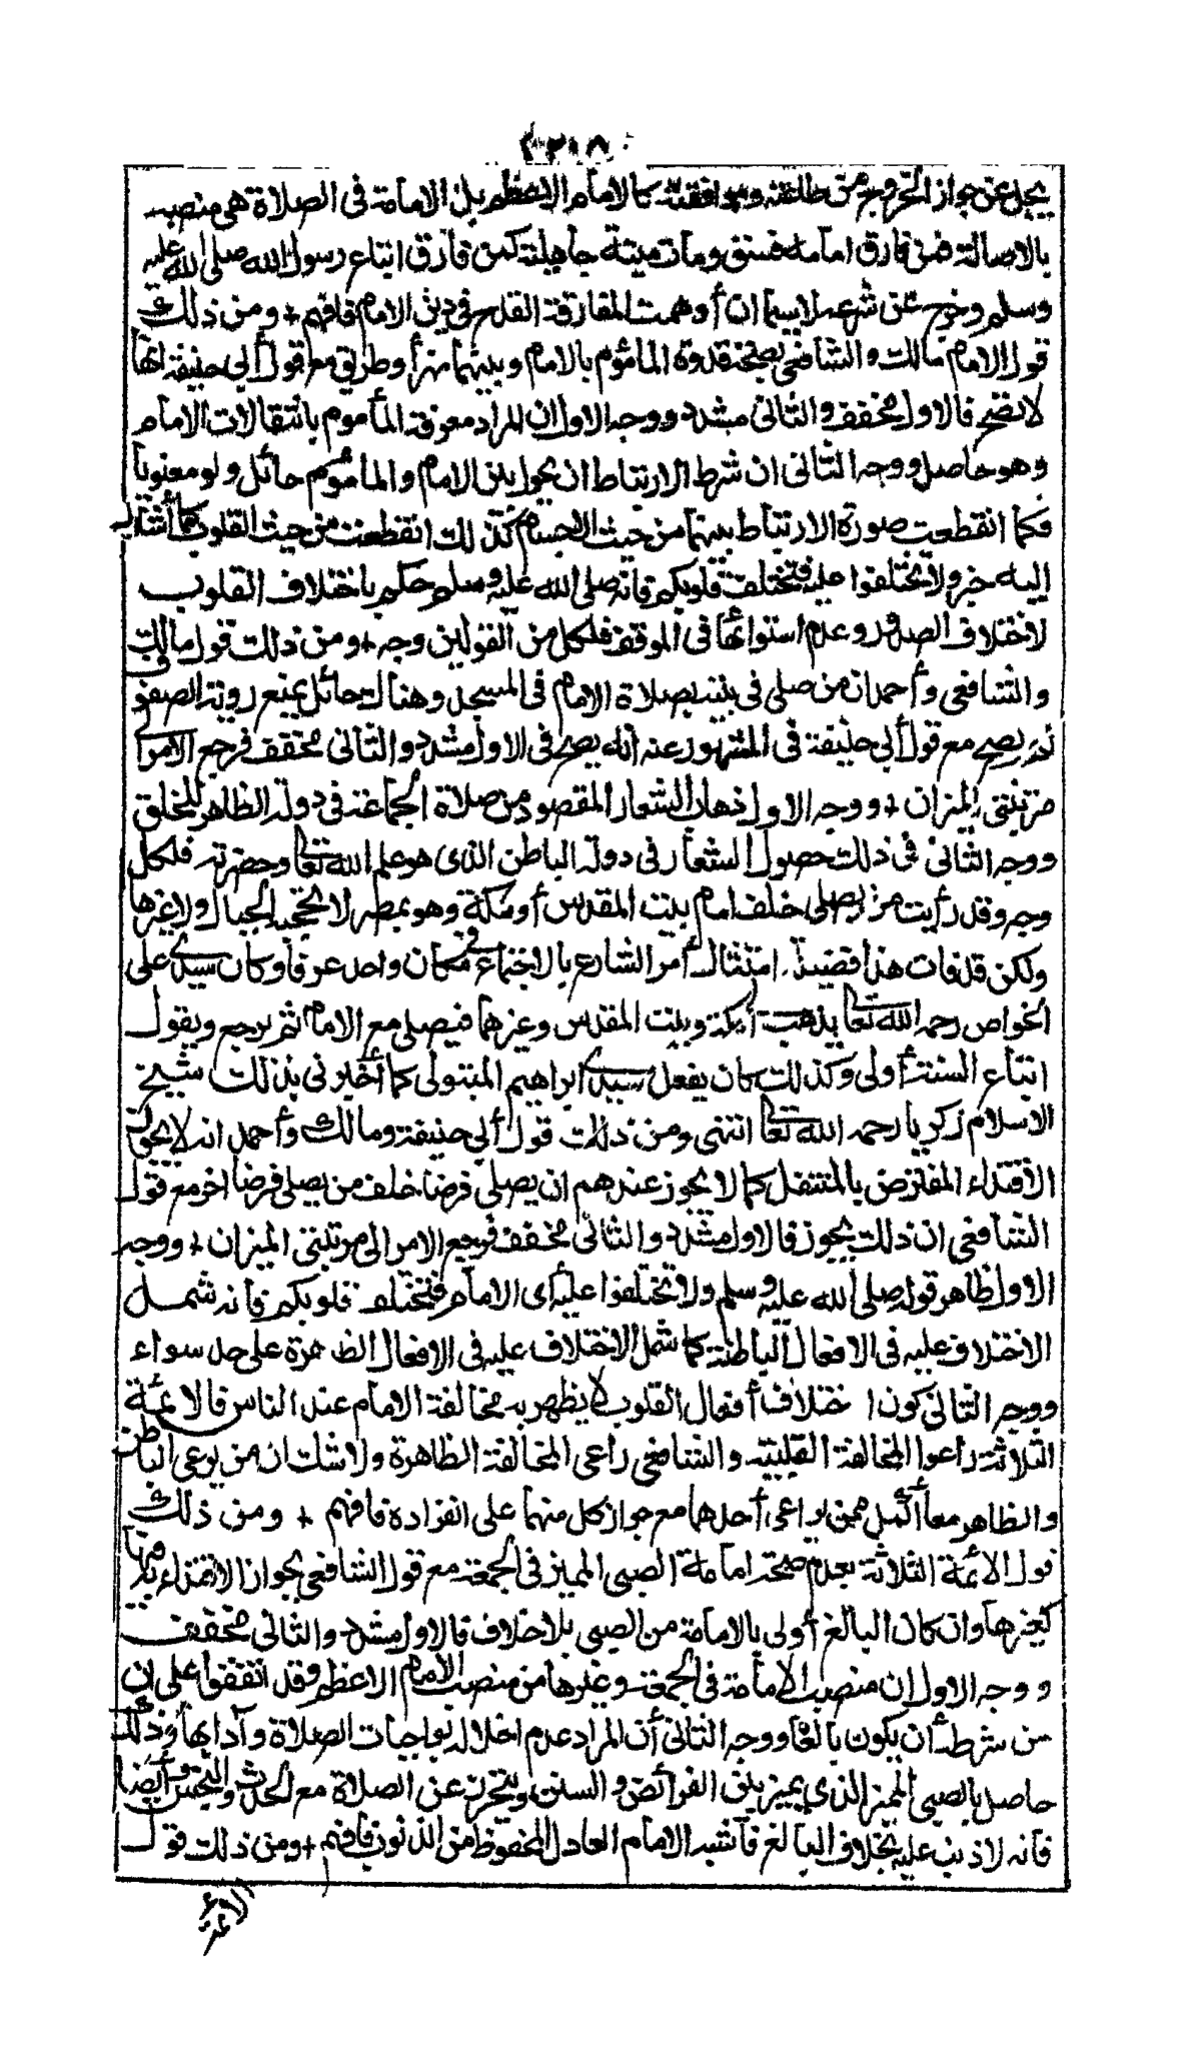 ٢١٨
يجل عن جواز الخروج من طاعته وموافقته كالامام الاعظم بل الامامة فى الصلاة هى منصبه
بالاصالة فمن فارق امامه فسق ومات ميتة جاهلية كمن فارق اتباع رسول الله صلى الله عليه
وسلم وخرج عن شرعه لاسيما ان أوهمت المفارقة القدح فى دين الامام فافهم + ومن ذلك
قول الامام مالك والشافعى بصحة قدوة المأموم بالامام وبينهما نهر أو طريق مع قول أبى حنيفة انها
لا تصح فالاول مخفف والثانى مشدد ووجه الاول ان المراد معرفة المأموم بانتقالات الامام
وهو حاصل ووجه الثانى ان شرط الارتباط ان يحول بين الامام والمأموم حائل ولو معنويا
فكما انقطعت صورة الارتباط بينهما من حيث الاجسام كذلك انقطعت من حيث القلوب كما أشار
إليه خبر ولا تختلفوا عليه فتختلف قلوبكم فانه صلى الله عليه وسلم حكم باختلاف القلوب
لاختلاف الصفوف وعدم استوائها فى الموقف فلكل من القولين وجه + ومن ذلك قول مالك
والشافعى وأحمد ان من صلى فى بيته بصلاة الامام فى المسجد وهناك حائل يمنع رؤية الصفوف
لم يصح مع قول أبى حنيفة فى المشهور عنه انه يصح فى الاول مشدد والثانى مخفف فرجع الامر الى
مرتبتى الميزان + ووجه الاول ذهاب الشعار المقصود من صلاة الجماعة فى دولة الظاهر للخلق
ووجه الثانى فى ذلك حصول الشعار فى دولة الباطن الذى هو علم الله تعالى وحضرته فلكل
وجه وقد رأيت من يصلى خلف امام بيت المقدس أو مكة وهو بمصر لا تحجبه الجبال ولا غيرها
ولكن قد فات هذا فضيلة امتثال أمر الشارع بالاجتماع فى مكان واحد عرفا وكان سيدى على
الخواص رحمه الله تعالى يذهب الى مكة وبيت المقدس وغيرهما فيصلى مع الامام ثم يرجع ويقول
اتباع السنة أولى وكذلك كان يفعل سيدى ابراهيم المتبولى كما أخبرنى بذلك شيخ
الاسلام زكريا رحمه الله تعالى انتهى ومن ذلك قول أبى حنيفة ومالك وأحمد انه لا يجوز
الاقتداء المفترض بالمتنفل كما لا يجوز عندهم ان يصلى فرضا خلف من يصلى فرضا اخر مع قول
الشافعى ان ذلك يجوز فالاول مشدد والثانى مخفف فرجع الامر الى مرتبتى الميزان + ووجه
الاول ظاهر قوله صلى الله عليه وسلم ولا تختلفوا عليه أى الامام فتختلف قلوبكم فانه شمل
الاختلاف عليه فى الافعال الباطنة كما شمل الاختلاف عليه فى الافعال الظاهرة على حد سواء
ووجه الثانى كون اختلاف أفعال القلوب لا يظهر به مخالفة الامام عند الناس فالائمة
الثلاثة راعوا المخالفة القلبية والشافعى راعى المخالفة الظاهرة ولا شك ان من يوعى الباطن
والظاهر معا أكمل ممن يراعى أحدهما مع جواز كل منهما على انفراده فافهم + ومن ذلك
قول الائمة الثلاثة بعدم صحة امامة الصبى المميز فى الجمعة مع قول الشافعى بجواز الاقتداء به فيها
كغيرها وان كان البالغ أولى بالامامة من الصبى بلا خلاف فالاول مشدد والثانى مخفف
ووجه الاول ان منصب الامامة فى الجمعة وغيرها من منصب الامام الاعظم وقد اتفقوا على ان
من شرطه أن يكون بالغا ووجه الثانى أن المراد عدم اخلاله بواجبات الصلاة وآدابها وذلك
حاصل بالصبى المميز الذى يميز بين الفرائض والسنن ويتحرز عن الصلاة مع الحدث والنجس وأيضا
فانه لا ذنب عليه بخلاف البالغ فأشبه الامام العادل المحفوظ من الذنوب فافهم + ومن ذلك قول
الائمة